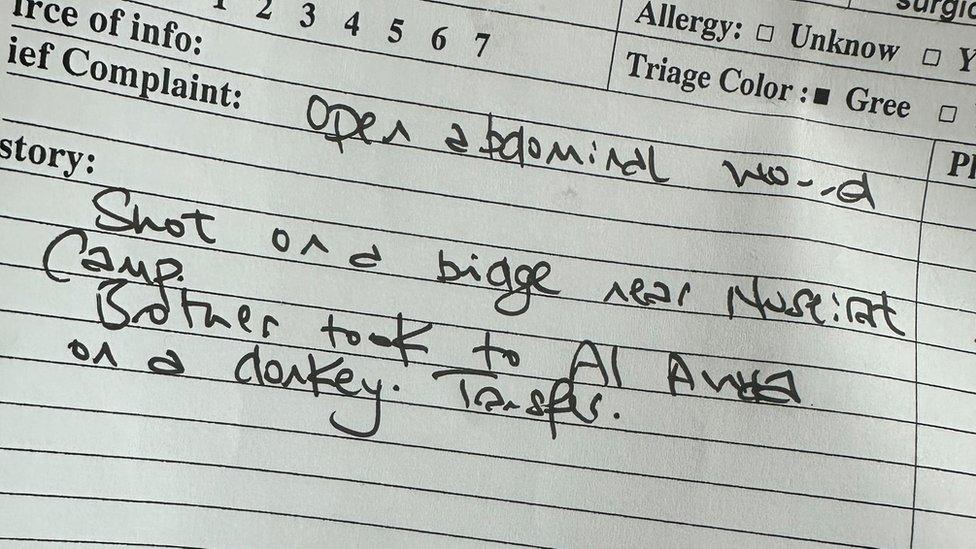 surgic
1 2 3 4 5 6 7
Allergy: □ Unknow □ Y
urce of info:
Triage Color : ■ Gree □
ief Complaint: Open abdominal wound
story:
Shot on a bridge near Nuseirat
Camp.
Brother took to Al Awda
on a donkey. Transfer.